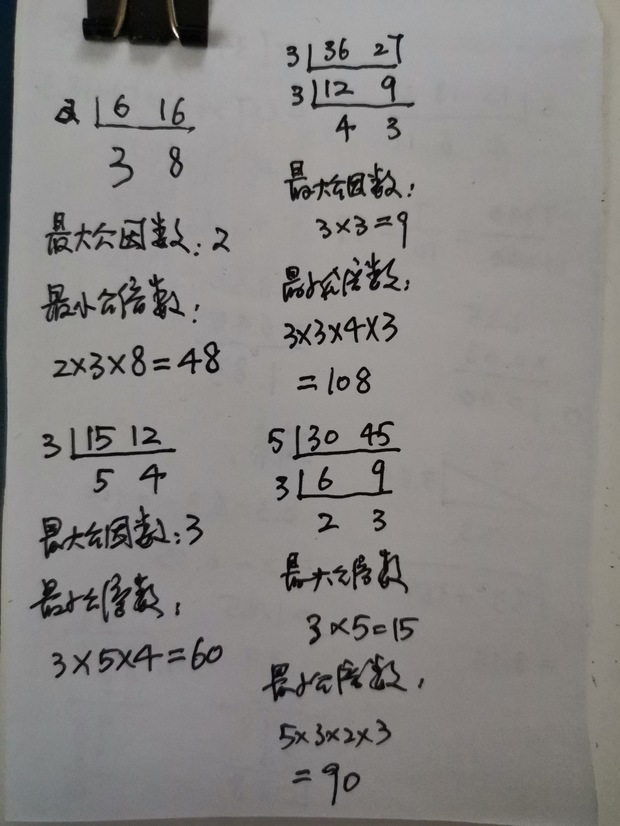 2 6 16
3 8
最大公因数:2
最小公倍数:
2×3×8=48
3 36 27
3 12 9
4 3
最大公因数:
3×3=9
最小公倍数:
3×3×4×3
=108
3 15 12
5 4
最大公因数:3
最小公倍数:
3×5×4=60
5 30 45
3 6 9
2 3
最大公倍数
3×5=15
最小公倍数:
5×3×2×3
=90